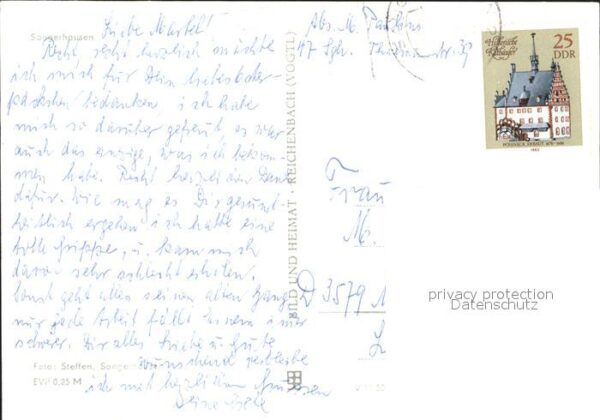 Sangerhausen
Liebe Martel!
Recht recht herzlich möchte
ich mich für Dein
päckchen bedanken, ich habe
mich so darüber gefreut, es war
auch das einzige, was ich bekom-
men habe. Recht herzlichen Dank
dafür. Wie mag es Dir gesund-
heitlich ergehen ich hatte eine
tolle Grippe, u. kann mich
davon sehr schlecht erholen.
Sonst geht alles seinen alten Gang
nur jede Arbeit fällt einem immer
schwerer. Dir alles Liebe u. Gute
wünschend verbleibe
ich mit herzlichen Grüssen
Deine
Foto: Steffen, Sangerhausen
EVP 0,25 M
BILD UND HEIMAT · REICHENBACH (VOGTL)
V 11 50
Abs. M. Paulius
47 Sgh.
Historische Rathäuser
25
DDR
PÖSSNECK, ERBAUT 1478-1486
1983
Frau
M.
D 3579
privacy protection
Datenschutz